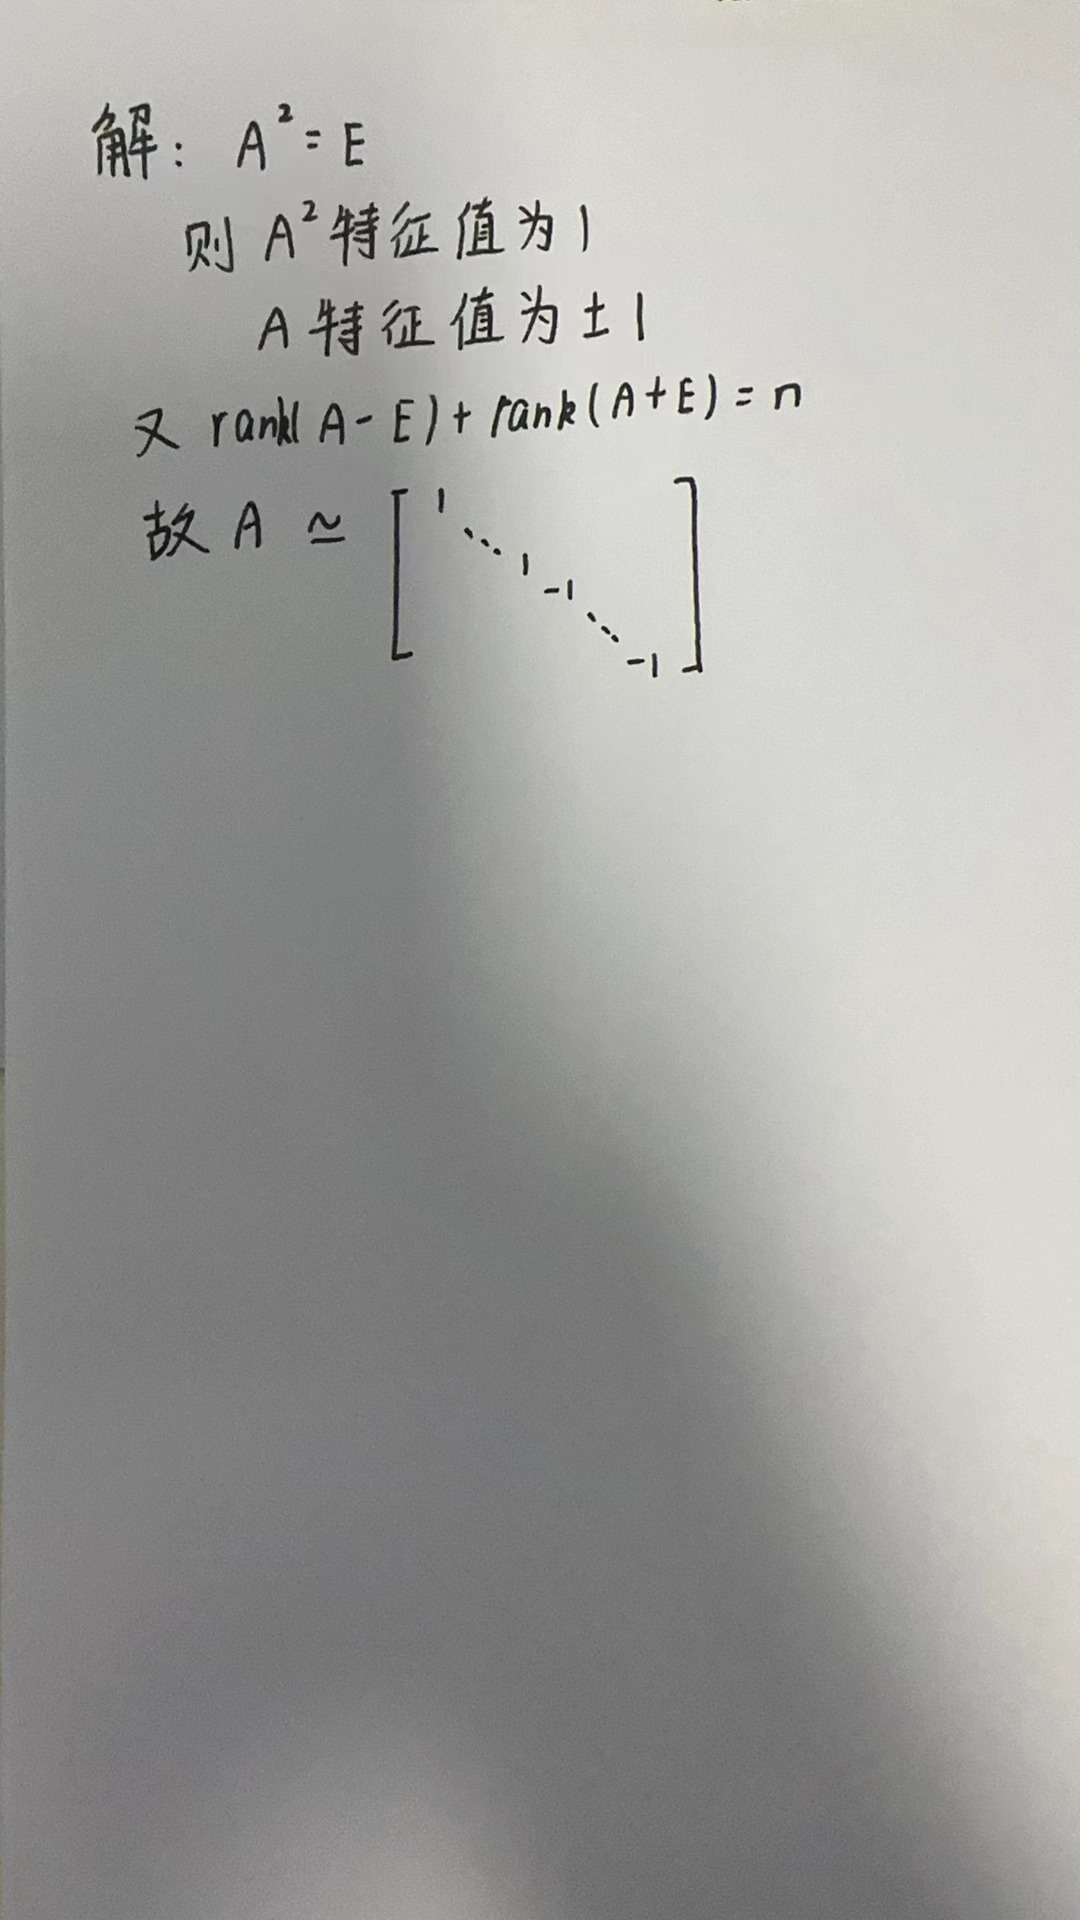 解: A² = E
则 A² 特征值为 1
A 特征值为 ± 1
又 rank(A - E) + rank(A + E) = n
故 A ≃ [ 1 ⋱ 1 -1 ⋱ -1 ]